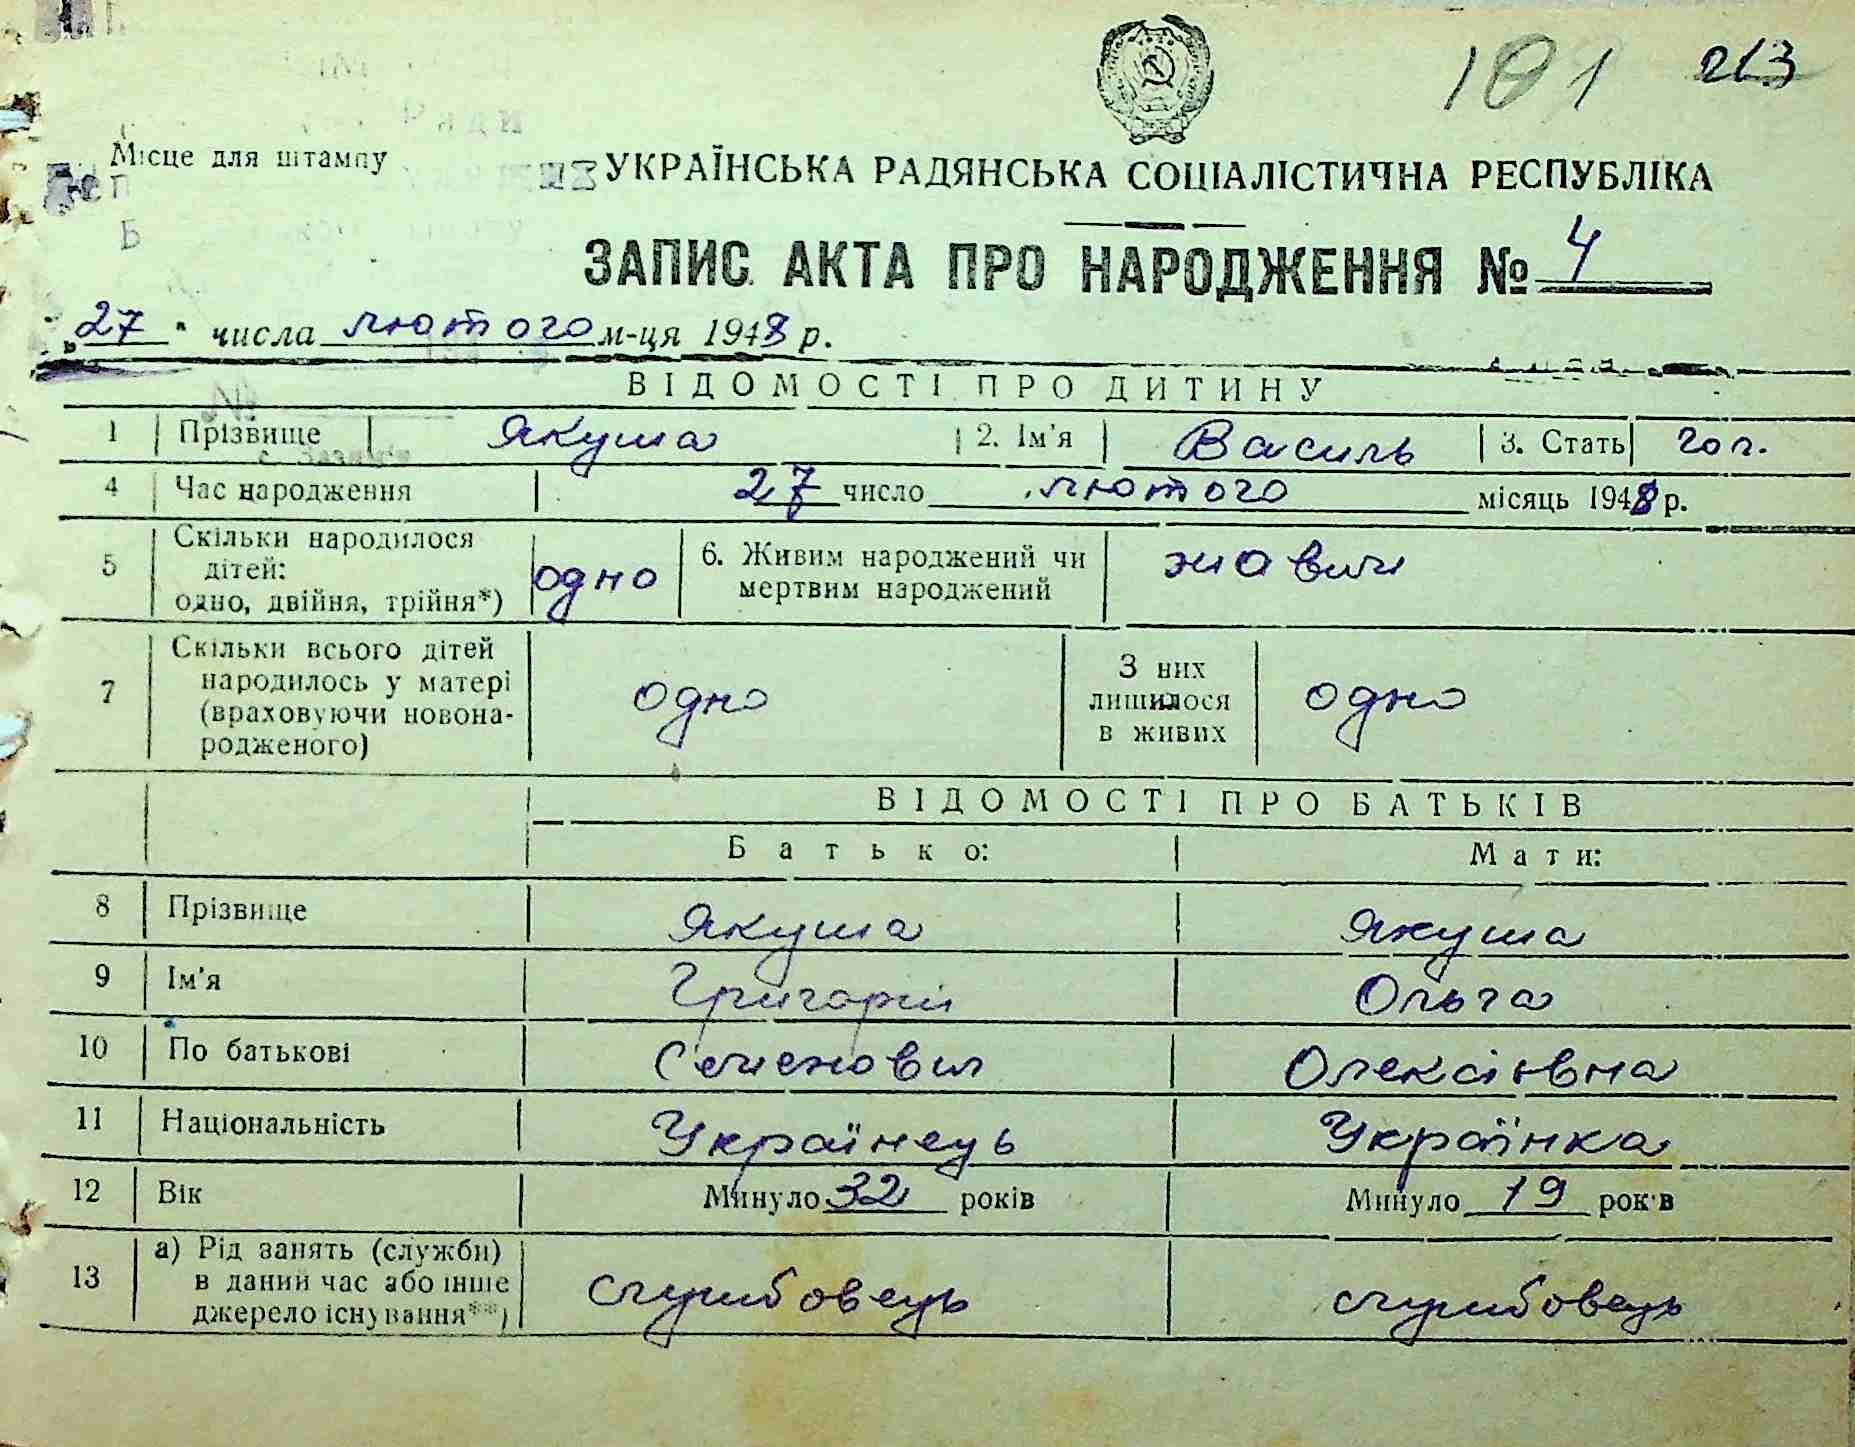 101 213
Місце для штампу
УКРАЇНСЬКА РАДЯНСЬКА СОЦІАЛІСТИЧНА РЕСПУБЛІКА
ЗАПИС АКТА ПРО НАРОДЖЕННЯ № 4
„27" числа лютого м-ця 1948 р.
ВІДОМОСТІ ПРО ДИТИНУ
1 Прізвище Якуша 2. Ім'я Василь 3. Стать чол.
4 Час народження 27 число лютого місяць 1948 р.
5 Скільки народилося дітей: одно, двійня, трійня*) одно 6. Живим народжений чи мертвим народжений живим
7 Скільки всього дітей народилось у матері (враховуючи новонародженого) одно З них лишилося в живих одно
ВІДОМОСТІ ПРО БАТЬКІВ
Батько: Мати:
8 Прізвище Якуша Якуша
9 Ім'я Григорій Ольга
10 По батькові Семенович Олексіївна
11 Національність Українець Українка
12 Вік Минуло 32 років Минуло 19 років
13 а) Рід занять (служби) в даний час або інше джерело існування**) службовець службовець